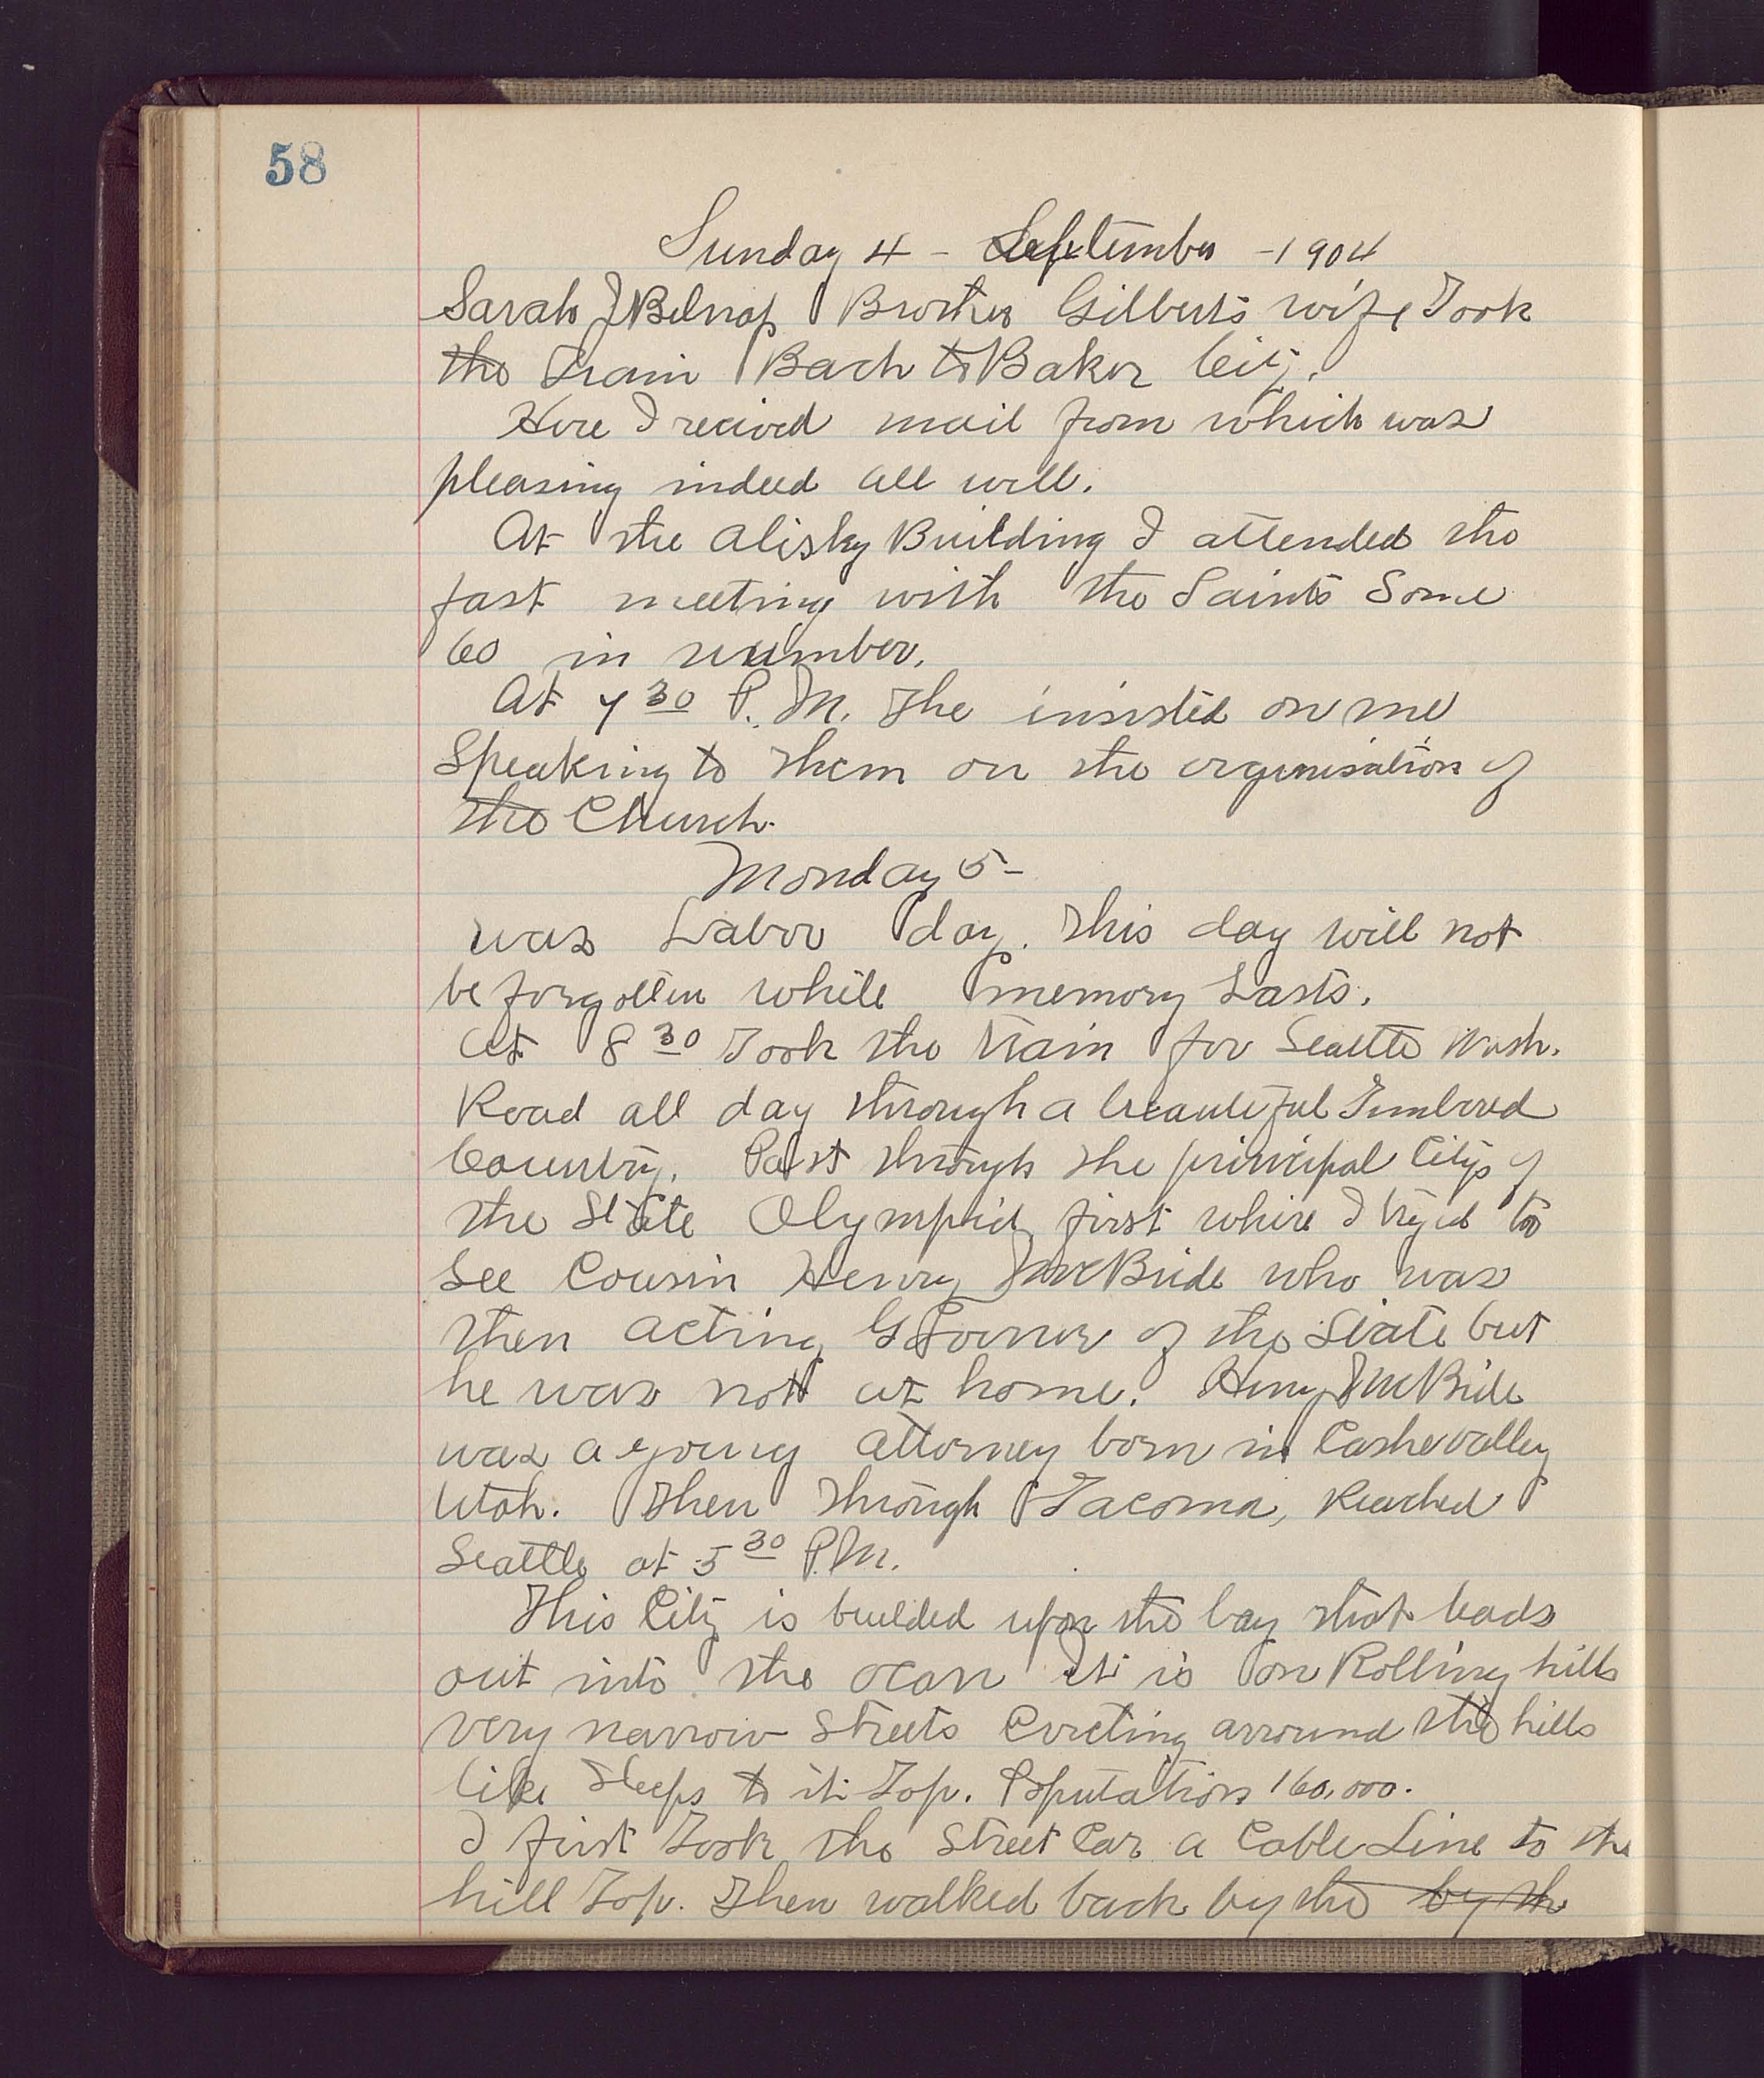 58
Sunday 4 - September - 1904
Sarah J Belnap Brother Gilberts wife Took
the Train Back to Baker City.
Here I recived mail from which was
pleasing indeed all well.
At the Alisky Building I attended the
fast meeting with the Saints Some
60 in number.
At 7 30 P.M. The insisted on me
Speaking to them on the organisation of
the Church.
Monday 5-
was Labor day. This day will not
be forgotten while memory Lasts.
At 8 30 Took the train for Seattle Wash.
Road all day through a beautiful Timbered
Country. Past through the principal Citys of
the State Olympia first where I tryed to
See Cousin Henry McBride who was
then acting Govenor of the State but
he was not at home. Henry McBride
was a young attorney born in Cashe valley
Utah. Then through Tacoma, Reached
Seattle at 5 30 P.M.
This City is builded upon the bay that leads
out into the ocan It is on Rolling hills
very narrow Streets Circling arround the hills
like Steps to it Top. Population 160,000.
I first Took the Street Car a Cable Line to the
hill Top. Then walked back by the by the